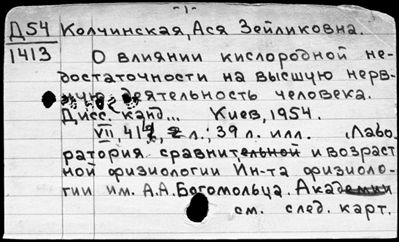 -1-
Д54 Колчинская, Ася Зейликовна.
1413 О влиянии кислородной не-
достаточности на высшую нерв-
ную деятельность человека.
Дисс. канд... Киев, 1954.
VII, 41 л.; 39 л. илл. Лабо-
ратория сравнительной и возраст
ной физиологии Ин-та физиоло-
гии им. А.А.Богомольца. Академии
см. след. карт.